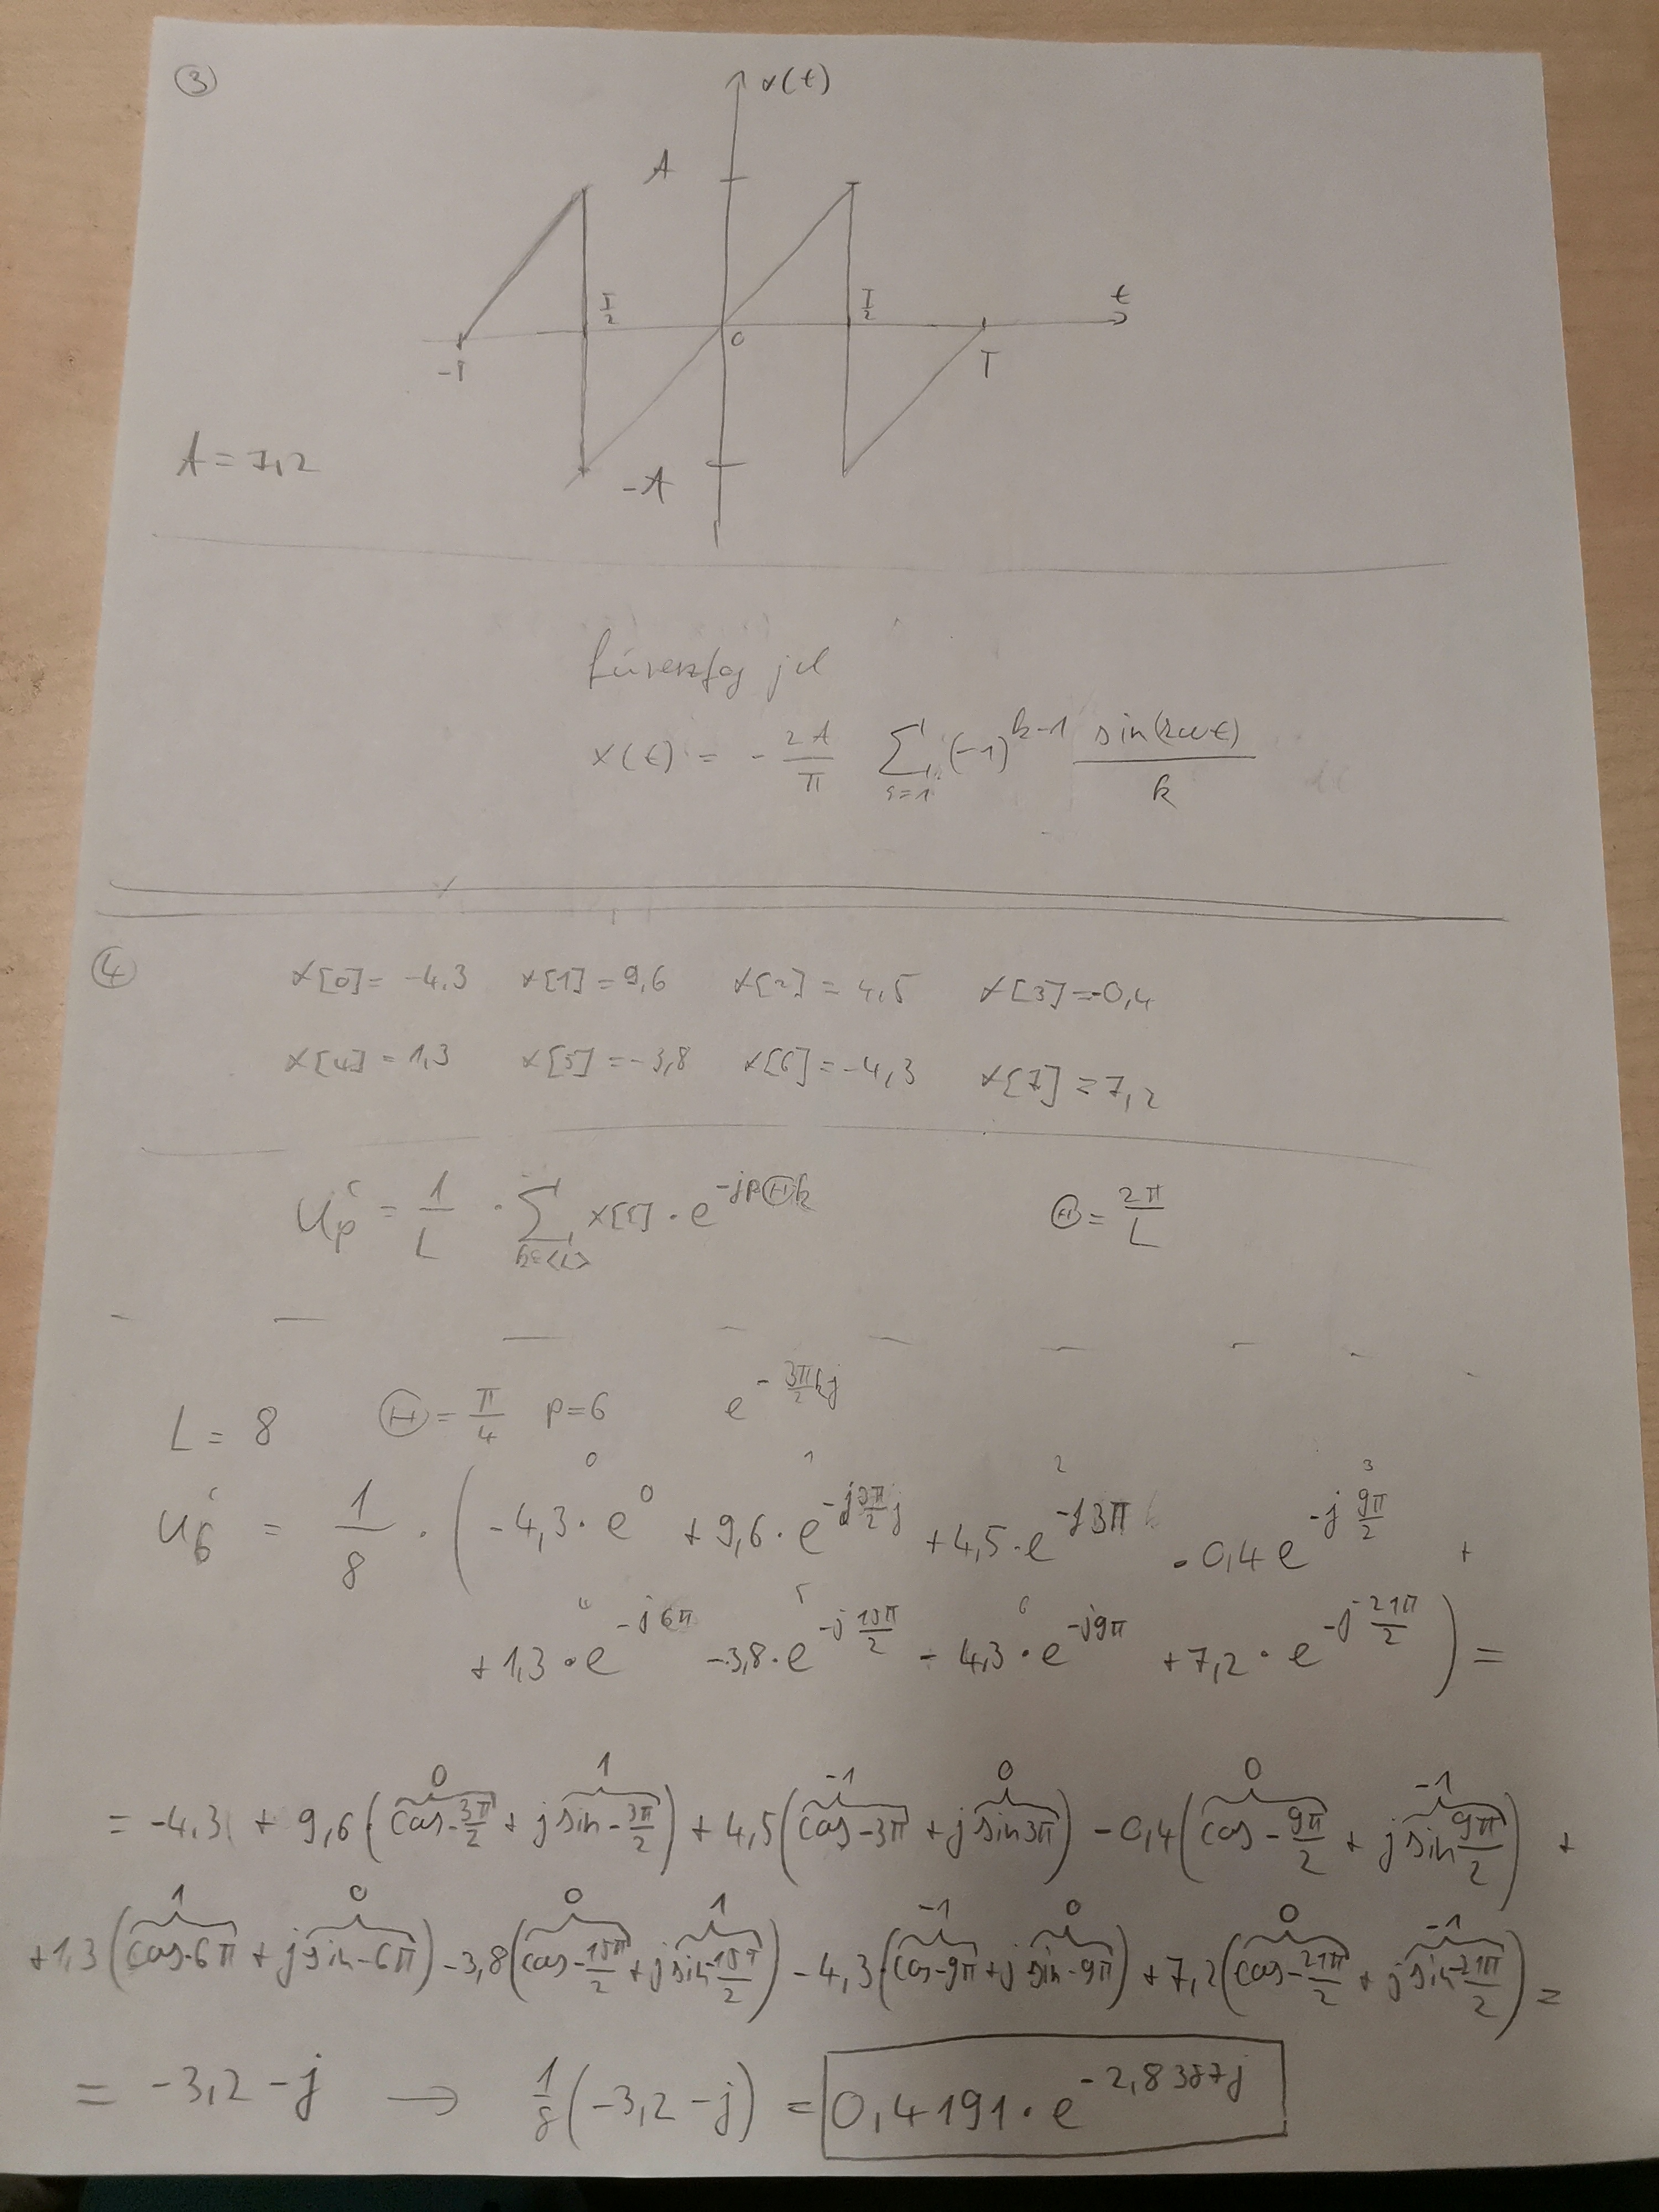 ③
x(t)
A
T/2 T/2 t
-T 0 T
A = 7,2
-A
fűrészfog jel
x(t) = - 2A/π ∑ (-1)^(k-1) sin(kωt)/k
④ x[0] = -4,3 x[1] = 9,6 x[2] = 4,5 x[3] = -0,4
x[4] = 1,3 x[5] = -3,8 x[6] = -4,3 x[7] = 7,2
U_p^c = 1/L · ∑_(k=<L>) x[k] · e^(-jpΘk) Θ = 2π/L
L = 8 Θ = π/4 p=6 e^(-3π/2 kj)
0 1 2 3
U_6^c = 1/8 · ( -4,3 · e^0 + 9,6 · e^(-j3π/2 j) + 4,5 · e^(-j3π) - 0,4 e^(-j9π/2) +
4 5 6
+1,3 · e^(-j6π) -3,8 · e^(-j15π/2) - 4,3 · e^(-j9π) + 7,2 · e^(-j21π/2) ) =
0 1 -1 0 0 -1
= -4,3 + 9,6 (cos -3π/2 + j sin -3π/2) + 4,5 (cos -3π + j sin 3π) - 0,4 (cos -9π/2 + j sin 9π/2) +
1 0 0 1 -1 0 0 -1
+1,3 (cos -6π + j sin -6π) -3,8 (cos -15π/2 + j sin -15π/2) - 4,3 (cos -9π + j sin -9π) + 7,2 (cos -21π/2 + j sin -21π/2) =
= -3,2 - j → 1/8 (-3,2 - j) = 0,4191 · e^(-2,8387j)